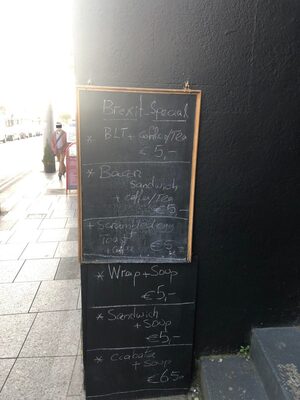 Brexit-Special
* BLT + coffee/Tea
€ 5,-
* Bacon
sandwich
+ coffee/Tea
€ 5,-
+ Scrambled egg
Toast
+ coffee
€ 5
* Wrap + Soup
€ 5,-
* Sandwich
+ Soup
€ 5,-
* Ciabata
+ soup
€ 6.50